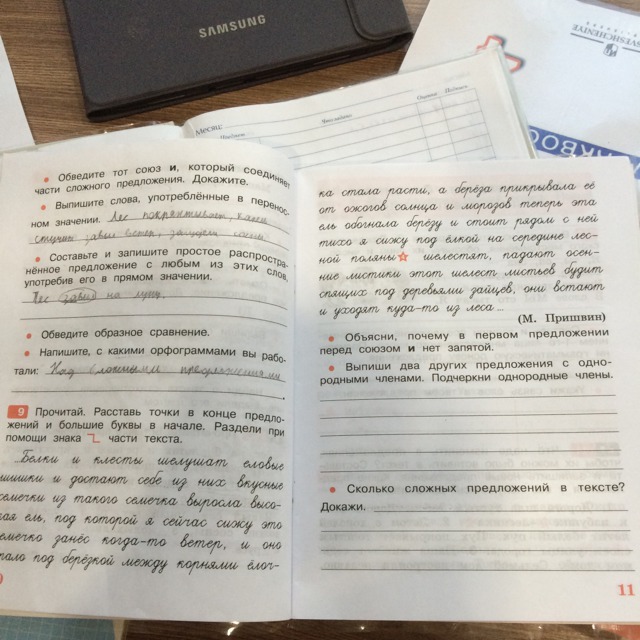 SAMSUNG
Месяц
Оценка Подпись
● Обведите тот союз и, который соединяет
части сложного предложения. Докажите.
● Выпишите слова, употреблённые в перенос-
ном значении. Лес покряхтывает,
завыл ветер,
● Составьте и запишите простое распростра-
нённое предложение с любым из этих слов,
употребив его в прямом значении.
Пёс завыл на луну.
● Обведите образное сравнение.
● Напишите, с какими орфограммами вы рабо-
тали: Над сложными предложениями
.
9 Прочитай. Расставь точки в конце предло-
жений и большие буквы в начале. Раздели при
помощи знака части текста.
...Белки и клесты шелушат еловые
шишки и достают себе из них вкусные
семечки из такого семечка выросла высо-
кая ель, под которой я сейчас сижу это
семечко занёс когда-то ветер, и оно
пало под берёзкой между корнями ёлоч-
ка стала расти, а берёза прикрывала её
от ожогов солнца и морозов теперь эта
ель обогнала берёзу и стоит рядом с ней
тихо я сижу под ёлкой на середине лес-
ной поляны шелестят, падают осен-
ние листики этот шелест листьев будит
спящих под деревьями зайцев, они встают
и уходят куда-то из леса...
(М. Пришвин)
● Объясни, почему в первом предложении
перед союзом и нет запятой.
● Выпиши два других предложения с одно-
родными членами. Подчеркни однородные члены.
● Сколько сложных предложений в тексте?
Докажи.
11